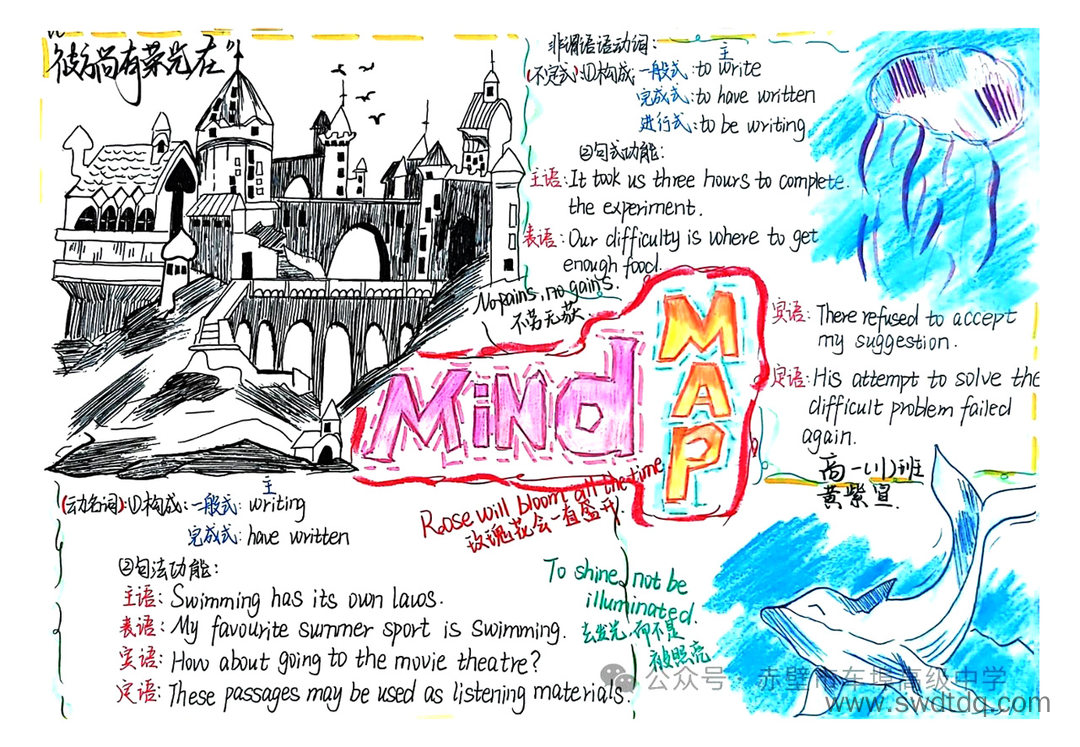 彼方尚有荣光在
非谓语语动词:
主
(不定式):①构成 一般式: to write
完成式: to have written
进行式: to be writing
②句式功能:
主语: It took us three hours to complete.
the experiment.
表语: Our difficulty is where to get
enough food.
No pains, no gains.
不劳无获
MiNd
MAP
宾语: There refused to accept
my suggestion.
定语: His attempt to solve the
difficult problem failed
again.
高一(1)班
黄紫宣
主
(动名词):①构成: 一般式: writing
完成式: have written
②句法功能:
主语: Swimming has its own laws.
表语: My favourite summer sport is swimming.
宾语: How about going to the movie theatre?
定语: These passages may be used as listening materials.
Rose will bloom all the time
玫瑰花会一直盛开.
To shine, not be
illuminated.
去发光,而不是
被照亮
公众号 赤壁市车埠高级中学
www.swdtdq.com